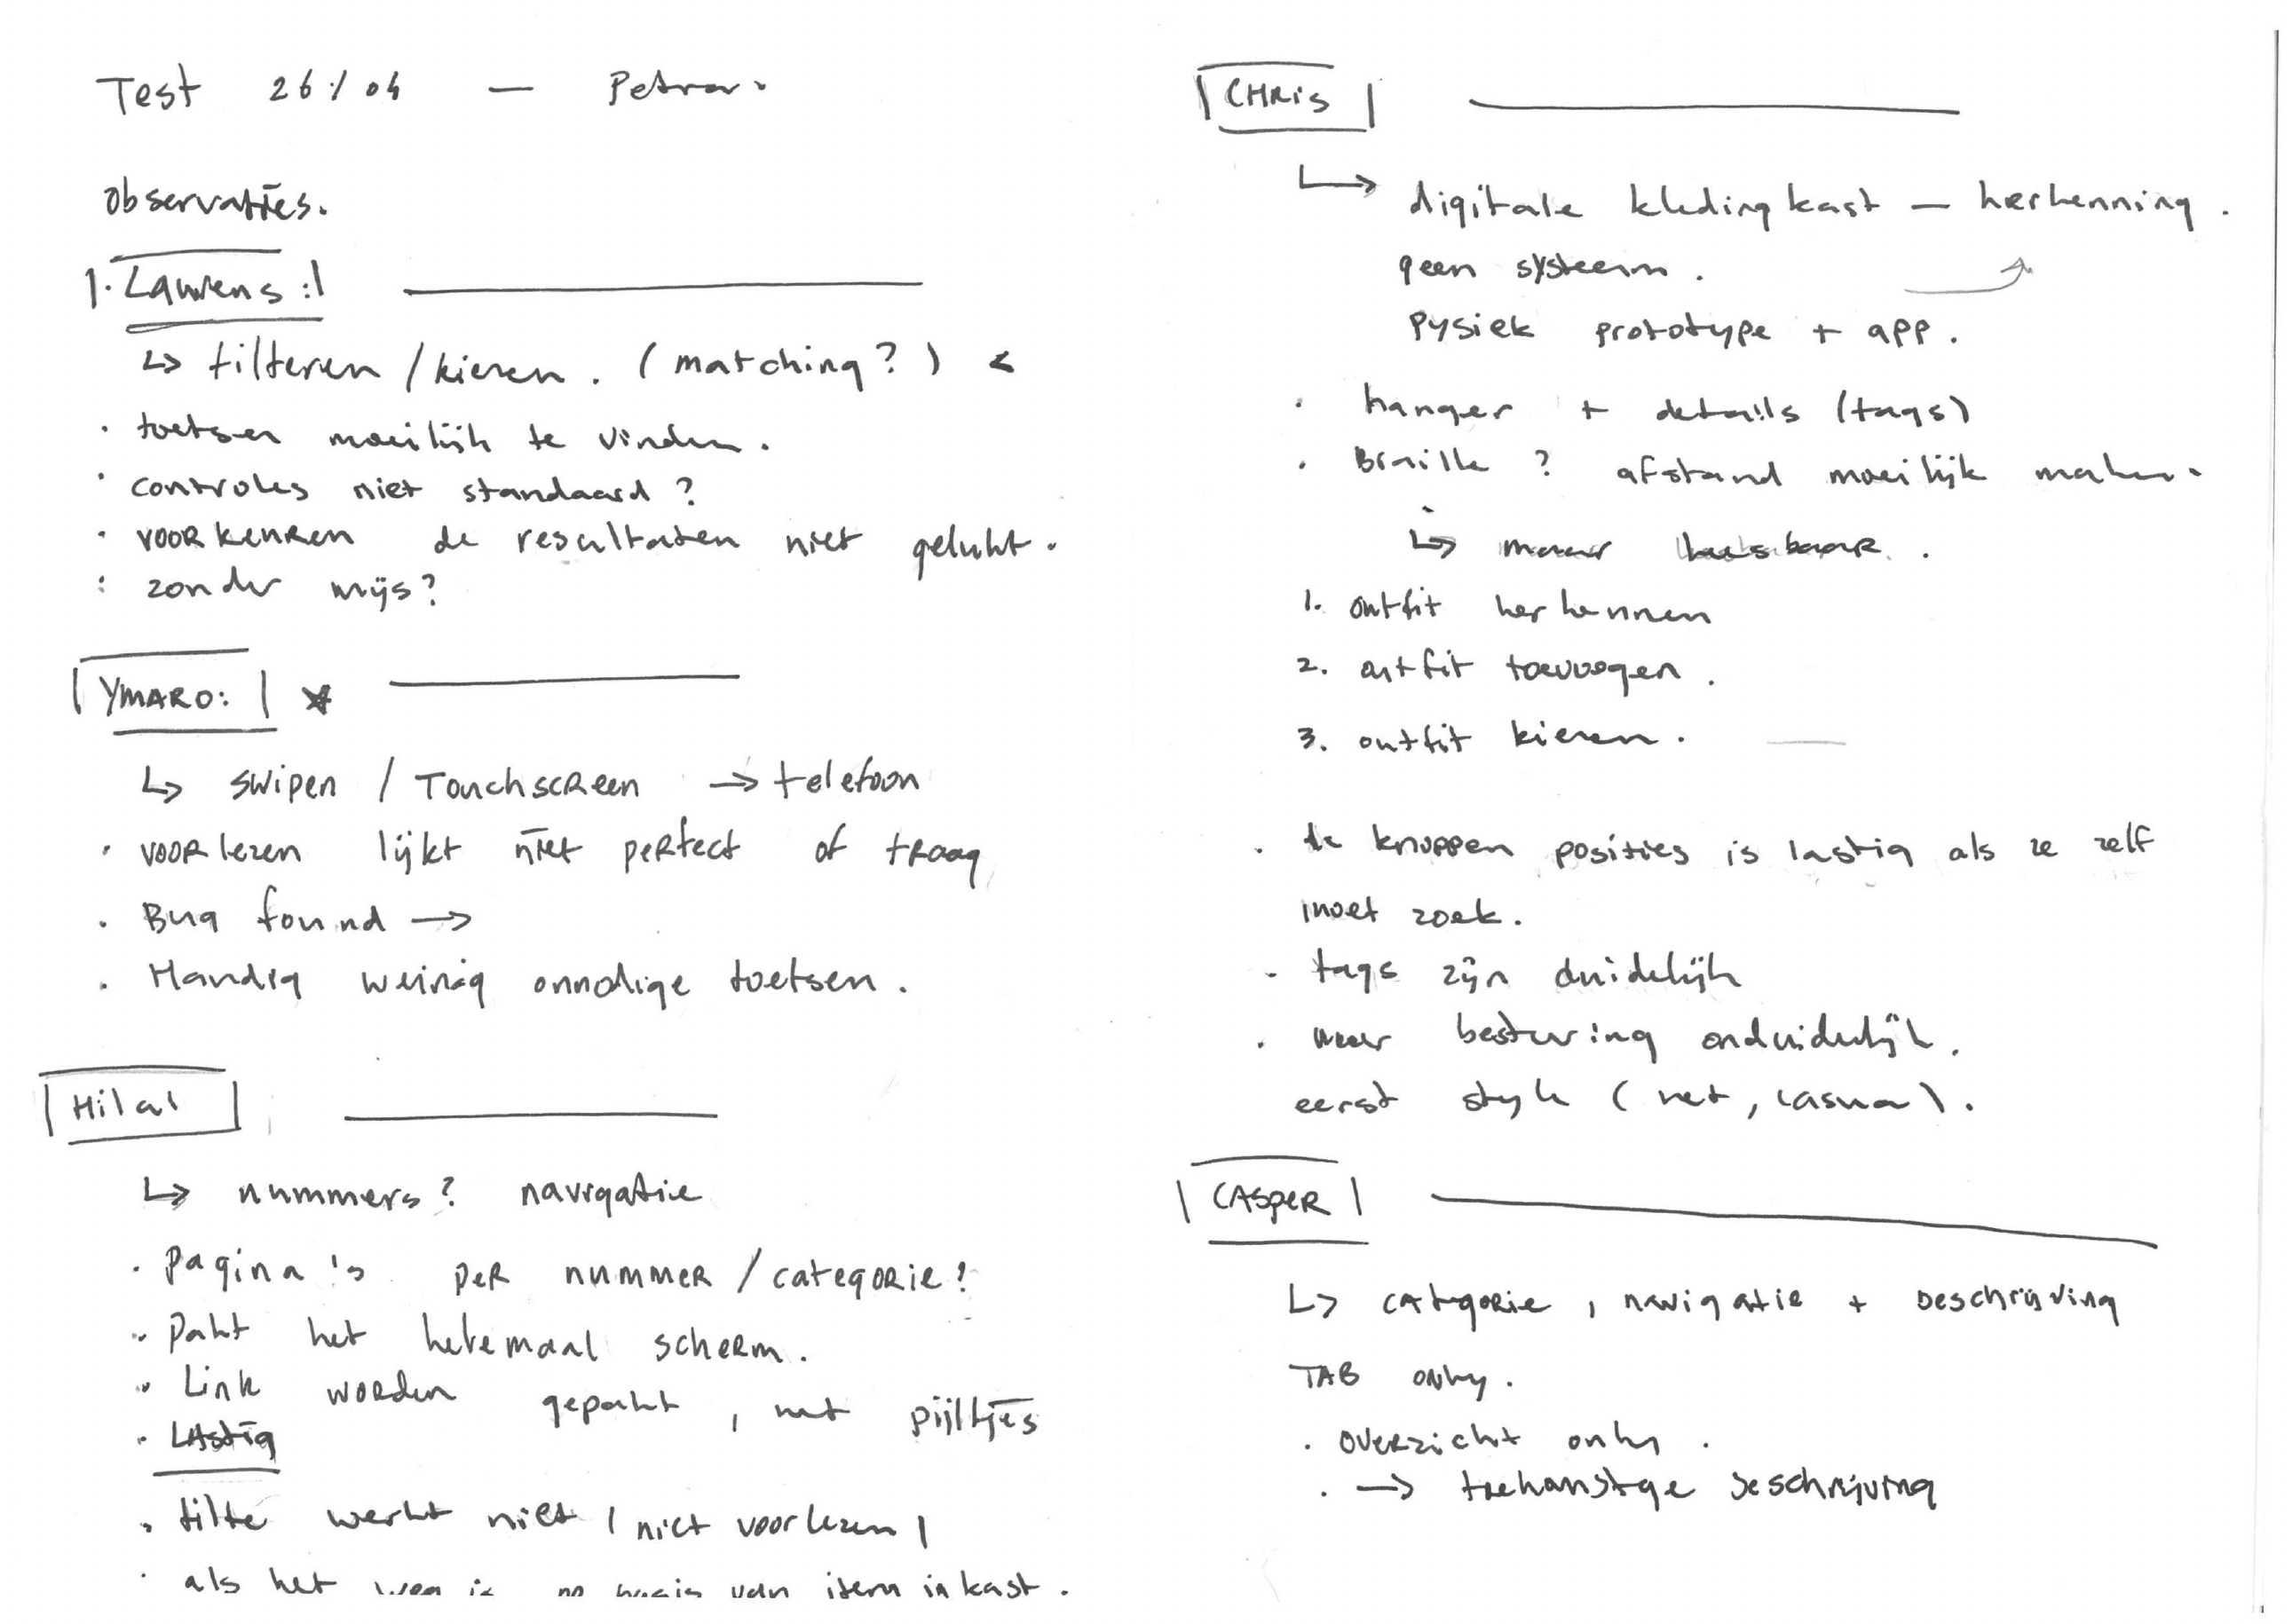 Test 26/04 — Petra.
observaties.
1. Laurens:
↳ filteren / kiezen. (matching?) <
· toetsen moeilijk te vinden.
· controles niet standaard?
· voorkeuren de resultaten niet gelukt.
: zonder mijs?
YMARO: ★
↳ swipen / Touchscreen → telefoon
· voorlezen lijkt niet perfect of traag
· Bug found →
· Handig weinig onnodige toetsen.
Hilal
↳ nummers? navigatie
· Pagina's per nummer / categorie?
· Pakt het helemaal scherm.
· Link worden gepakt, met pijltjes
· Lastig
· filte werkt niet (niet voorlezen)
· als het weg is van item in kast.
CHRIS
↳ digitale kledingkast — herkenning.
geen systeem.
Pysiek prototype + app.
· hanger + details (tags)
· Braille? afstand moeilijk maken.
↳ maar leesbaar.
1. outfit herkennen
2. outfit toevoegen.
3. outfit kiezen.
· de knoppen posities is lastig als ze zelf
moet zoek.
· tags zijn duidelijk
· maar besturing onduidelijk.
eerst style (net, casual).
CASPER
↳ categorie, navigatie + beschrijving
TAB only.
· overzicht only.
· → toekomstige beschrijving